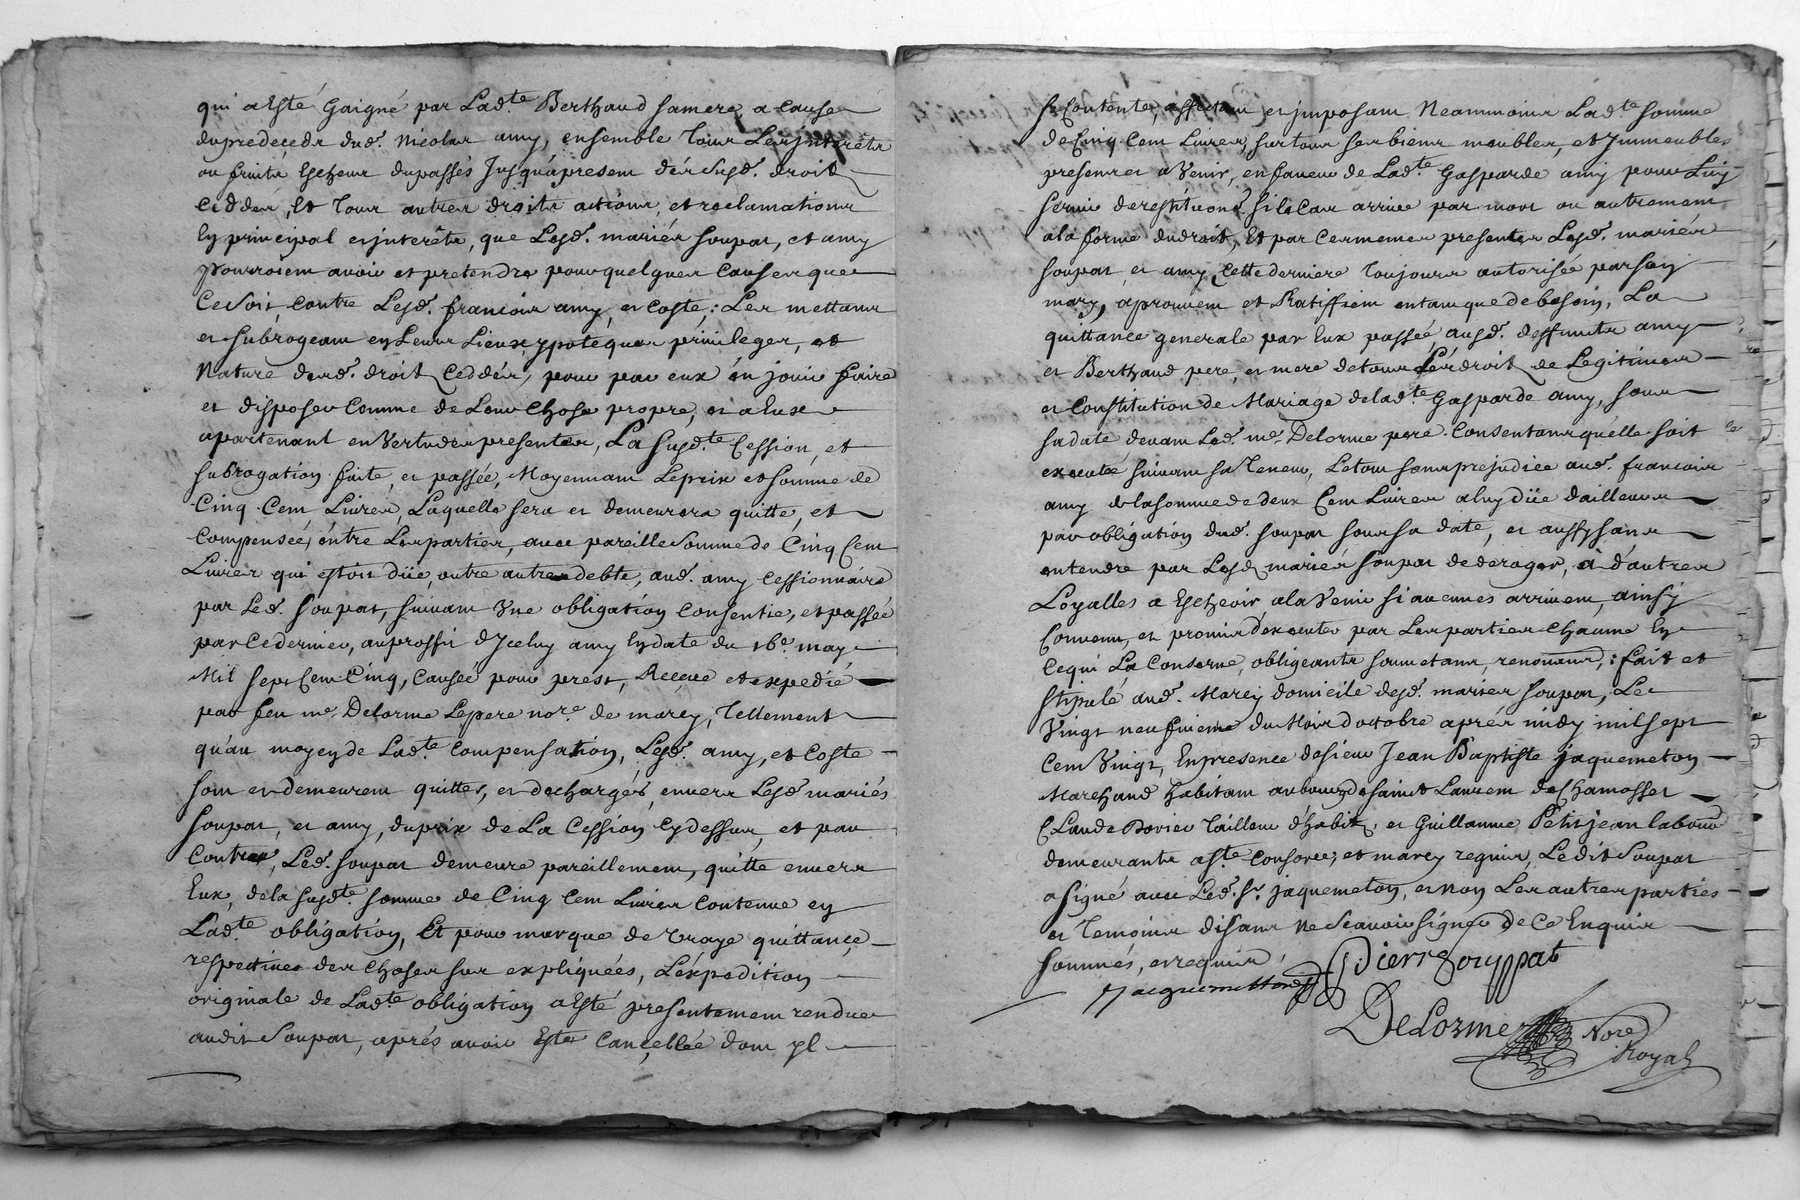 qui a esté Gaigné par Ladte Berthaud samere, a cause
dupredecedz dud. Nicolas amy, ensemble Tous Les jnterêtz
ou fruitz Escheus dupassés Jusquápresent des susd. droitz
ceddez, Et Tous autres droitz actions, et reclamations
En principal et jnterêtz, que Lesd. mariés soupat, et amy
pourroient avoir et pretendre pour quelques causes que
Ce soit, contre Lesd. francois amy, et Coste; Les mettans
et subrogeant en Leurs Lieux, ypoteques privileges, et
Nature desd. droitz Ceddés, pour par eux en jouir faire
et disposer Comme de Leur Chose propre, et a Eux
apartenant en Vertu des presentes, La susdte Cession, et
subrogation faite, et passée, Moyennant Leprix et somme de
Cinq Cent Livres, Laquelle sera et demeurera quitte, et
Compensée, entre Les parties, avec pareille somme de Cinq Cent
Livres qui estoit düe, outre autres debte, aud. amy Cessionnaire
par Led. soupat, suivant Une obligation Consentie, et passée
par Ce dernier, auproffit d'Jceluy amy En date du 16e. may
Mil sept Cent Cinq, Causée pour prest, Receue et expediée
par feu me. Delorme Lepere nore. de marcy, Tellement
qu'au moyen de Ladte Compensation, Lesd. amy, et Coste
sont et demeurent quittes, et dechargés, envers Lesd. mariés
soupat, et amy, duprix de La Cession Cy dessus, et par
Contre, Led. soupat demeure pareillement, quitte envers
Eux, de la susdte somme de Cinq Cent Livres Contenue en
Ladte obligation, Et pour marque de vraye quittance,
respectives des choses sus expliquées, L'éxpedition
originale de Ladte obligation a Esté presentement rendue
audit Soupat, aprés avoir Esté Cancellée dont jl
se Contente, affectant et jmposant Neantmoins Ladte somme
de Cinq Cent Livres, sur tous ses biens meubles, et Jmmeubles
presents et a Venir, en faveur de Ladte Gasparde amy pour Luy
servir de restitution si le Cas arrive par mort ou autrement
a la forme du droit, Et par Ces mesmes presentes Lesd. mariés
soupat et amy Cette derniere Toujours autorisée par son
mary, áprouvent et Ratiffient en tant que de besoin, La
quittance generale par Eux passée, ausd. deffuncts amy
et Berthaud pere, et mere de tous Les droitz de Legitimes
et Constitution de Mariage de ladte Gasparde amy, sous
sa date devant Led. me. Delorme pere. Consentans qu'elle soit
executée suivant sa Teneur, Le tout sans prejudice aud. francois
amy de la somme de deux Cent Livres a luy düe d'ailleurs
par obligation dud. soupat sous sa date, et aussy sans
entendre par Lesd. mariés soupat de deroger, à d'autres
Loyalles a Escheoir a la Venir si aucunes arrivent, ainsy
Convenu, et promis d'executer par Les parties chacune En
Ce qui La Conserne, obligeants soumetans, renonceans; fait et
stipulé aud. Marcy domicile desd. mariés soupat, Le
Vingt neufvieme du Mois d'octobre aprés midy mil sept
Cent Vingt, En presence de sieur Jean Baptiste jaquemeton
Marchand habitant au bourg de saint Laurent de Chamosset
Claude Dovier Tailleur d'habitz, et Guillaume Petitjean laboureur
demeurants a Ste Consorce, et marcy requis, Le dit Soupat
a signé avec Led. Sr. jaquemeton, et non Les autres parties
et Temoins disans ne Scavoir signer de Ce Enquis
sommés, et requis,
Jacquemetton Pierre Souppat
DeLorme Nore
Royal